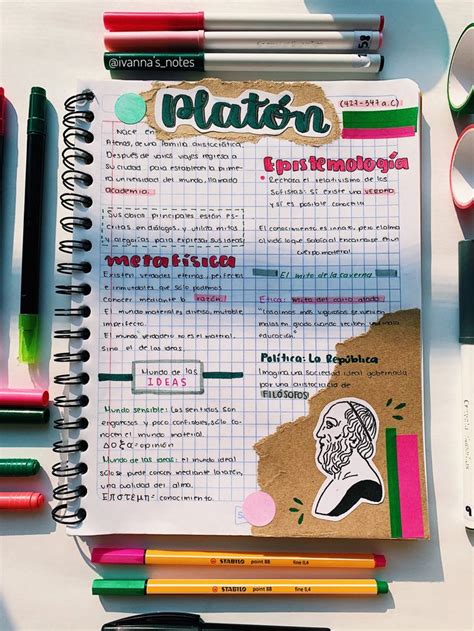 @ivanna's_notes
Platón
(427-347 a.C)
Nace en
Atenas, de una familia aristocrática.
Después de varios viajes regresa a
su ciudad para establecer la prime
ra universidad del mundo, llamada
Academia.
Sus obras principales están es
critas en diálogos, y utiliza mitos
y alegorías para expresar sus ideas
metafísica
Existen verdades eternas, perfectas
e inmutables que solo podemos
conocer mediante la razón.
El mundo material es diverso, mutable
imperfecto.
El mundo verdadero no es el material,
sino el de las ideas.
Mundo de las
IDEAS
Mundo sensible: Los sentidos son
engañosos y poco confiables, sólo co
nocen el mundo material.
Δοξα=opinión
Mundo de las ideas: el mundo ideal
sólo se puede conocer mediante la razón,
una cualidad del alma.
Επιστεμη=conocimiento.
Epistemología
Rechaza el relativismo de los
Sofistas: sí existe una VERDAD
y sí es posible conocerla
El conocimiento es innato, pero el alma
olvidó lo que sabía al encarnarse en un
cuerpo material.
El mito de la caverna
Ética: mito del carro alado
educación.
Política: La República
Imagina una sociedad ideal gobernada
por una aristocracia de
FILÓSOFOS
STABILO point 88 fine 0,4
STABILO point 88 fine 0,4